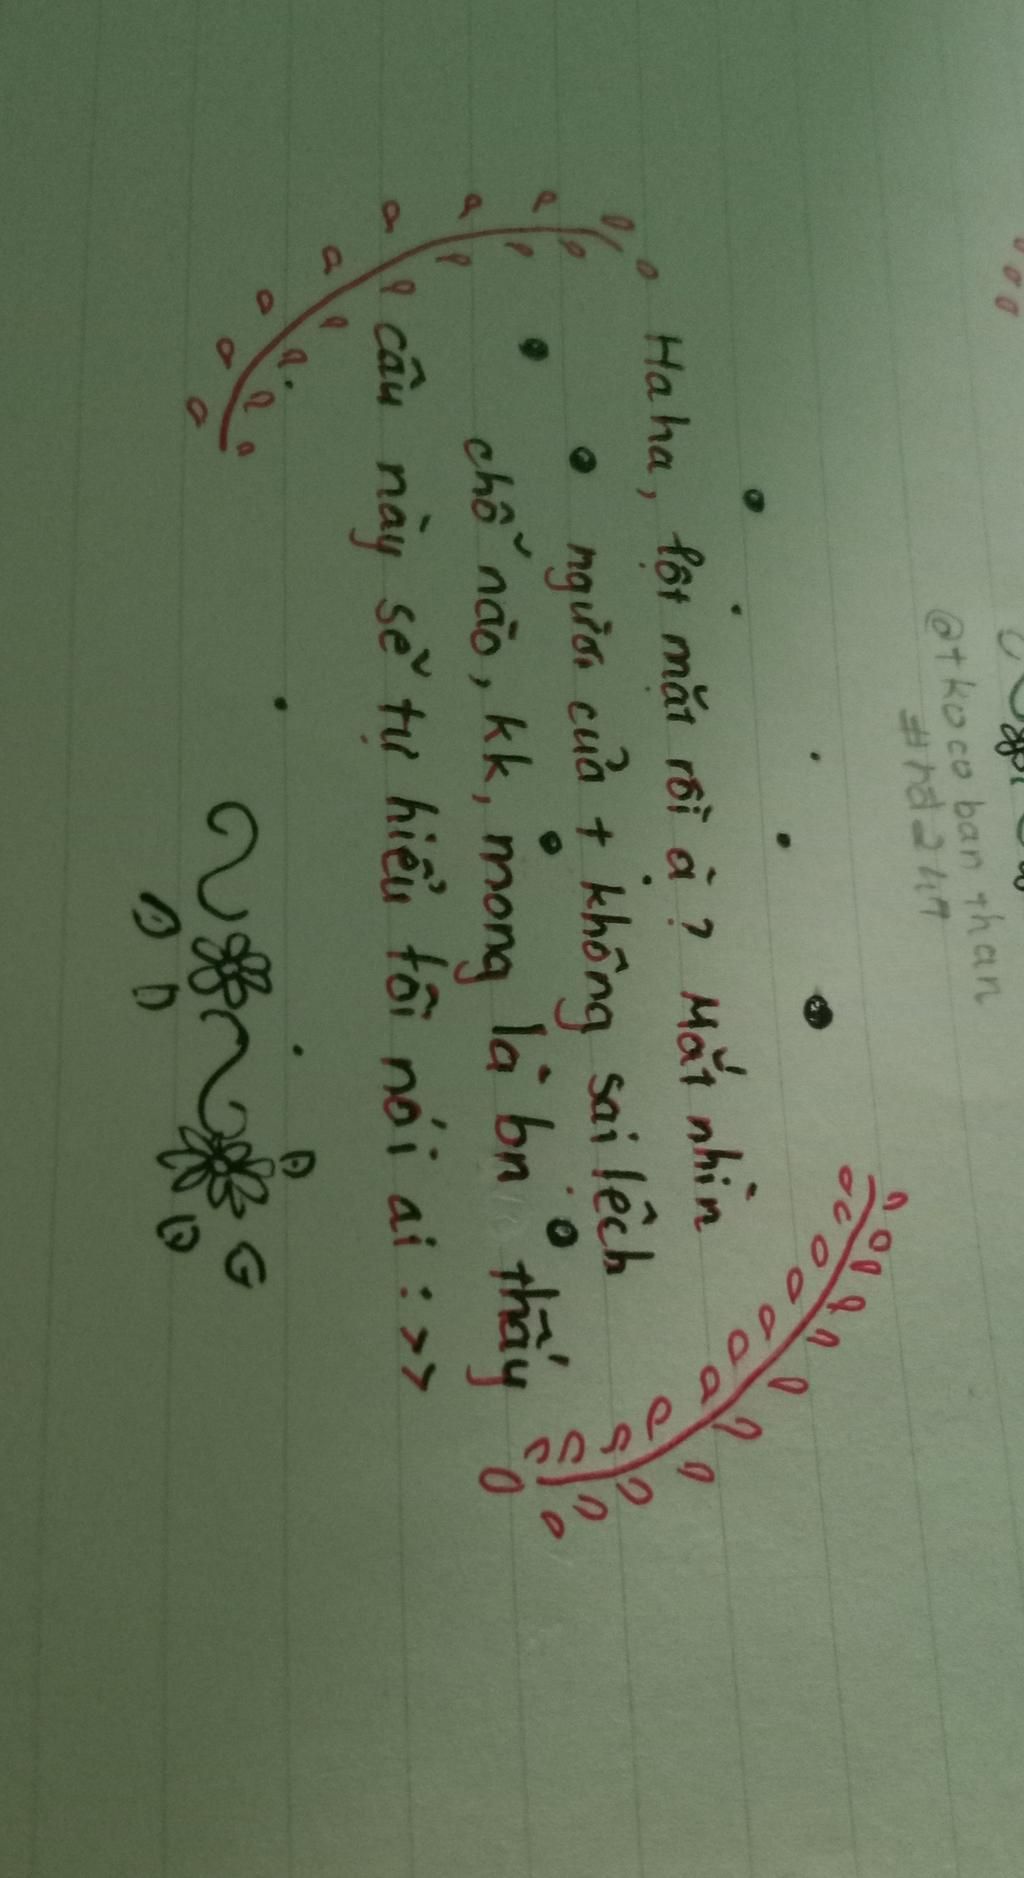 @tkocobanthan
#rd2hn
Haha, lột mặt rồi à? Mắt nhìn
người của t không sai lệch
chỗ nào, kk, mong là bn thấy
câu này sẽ tự hiểu tôi nói ai :>>